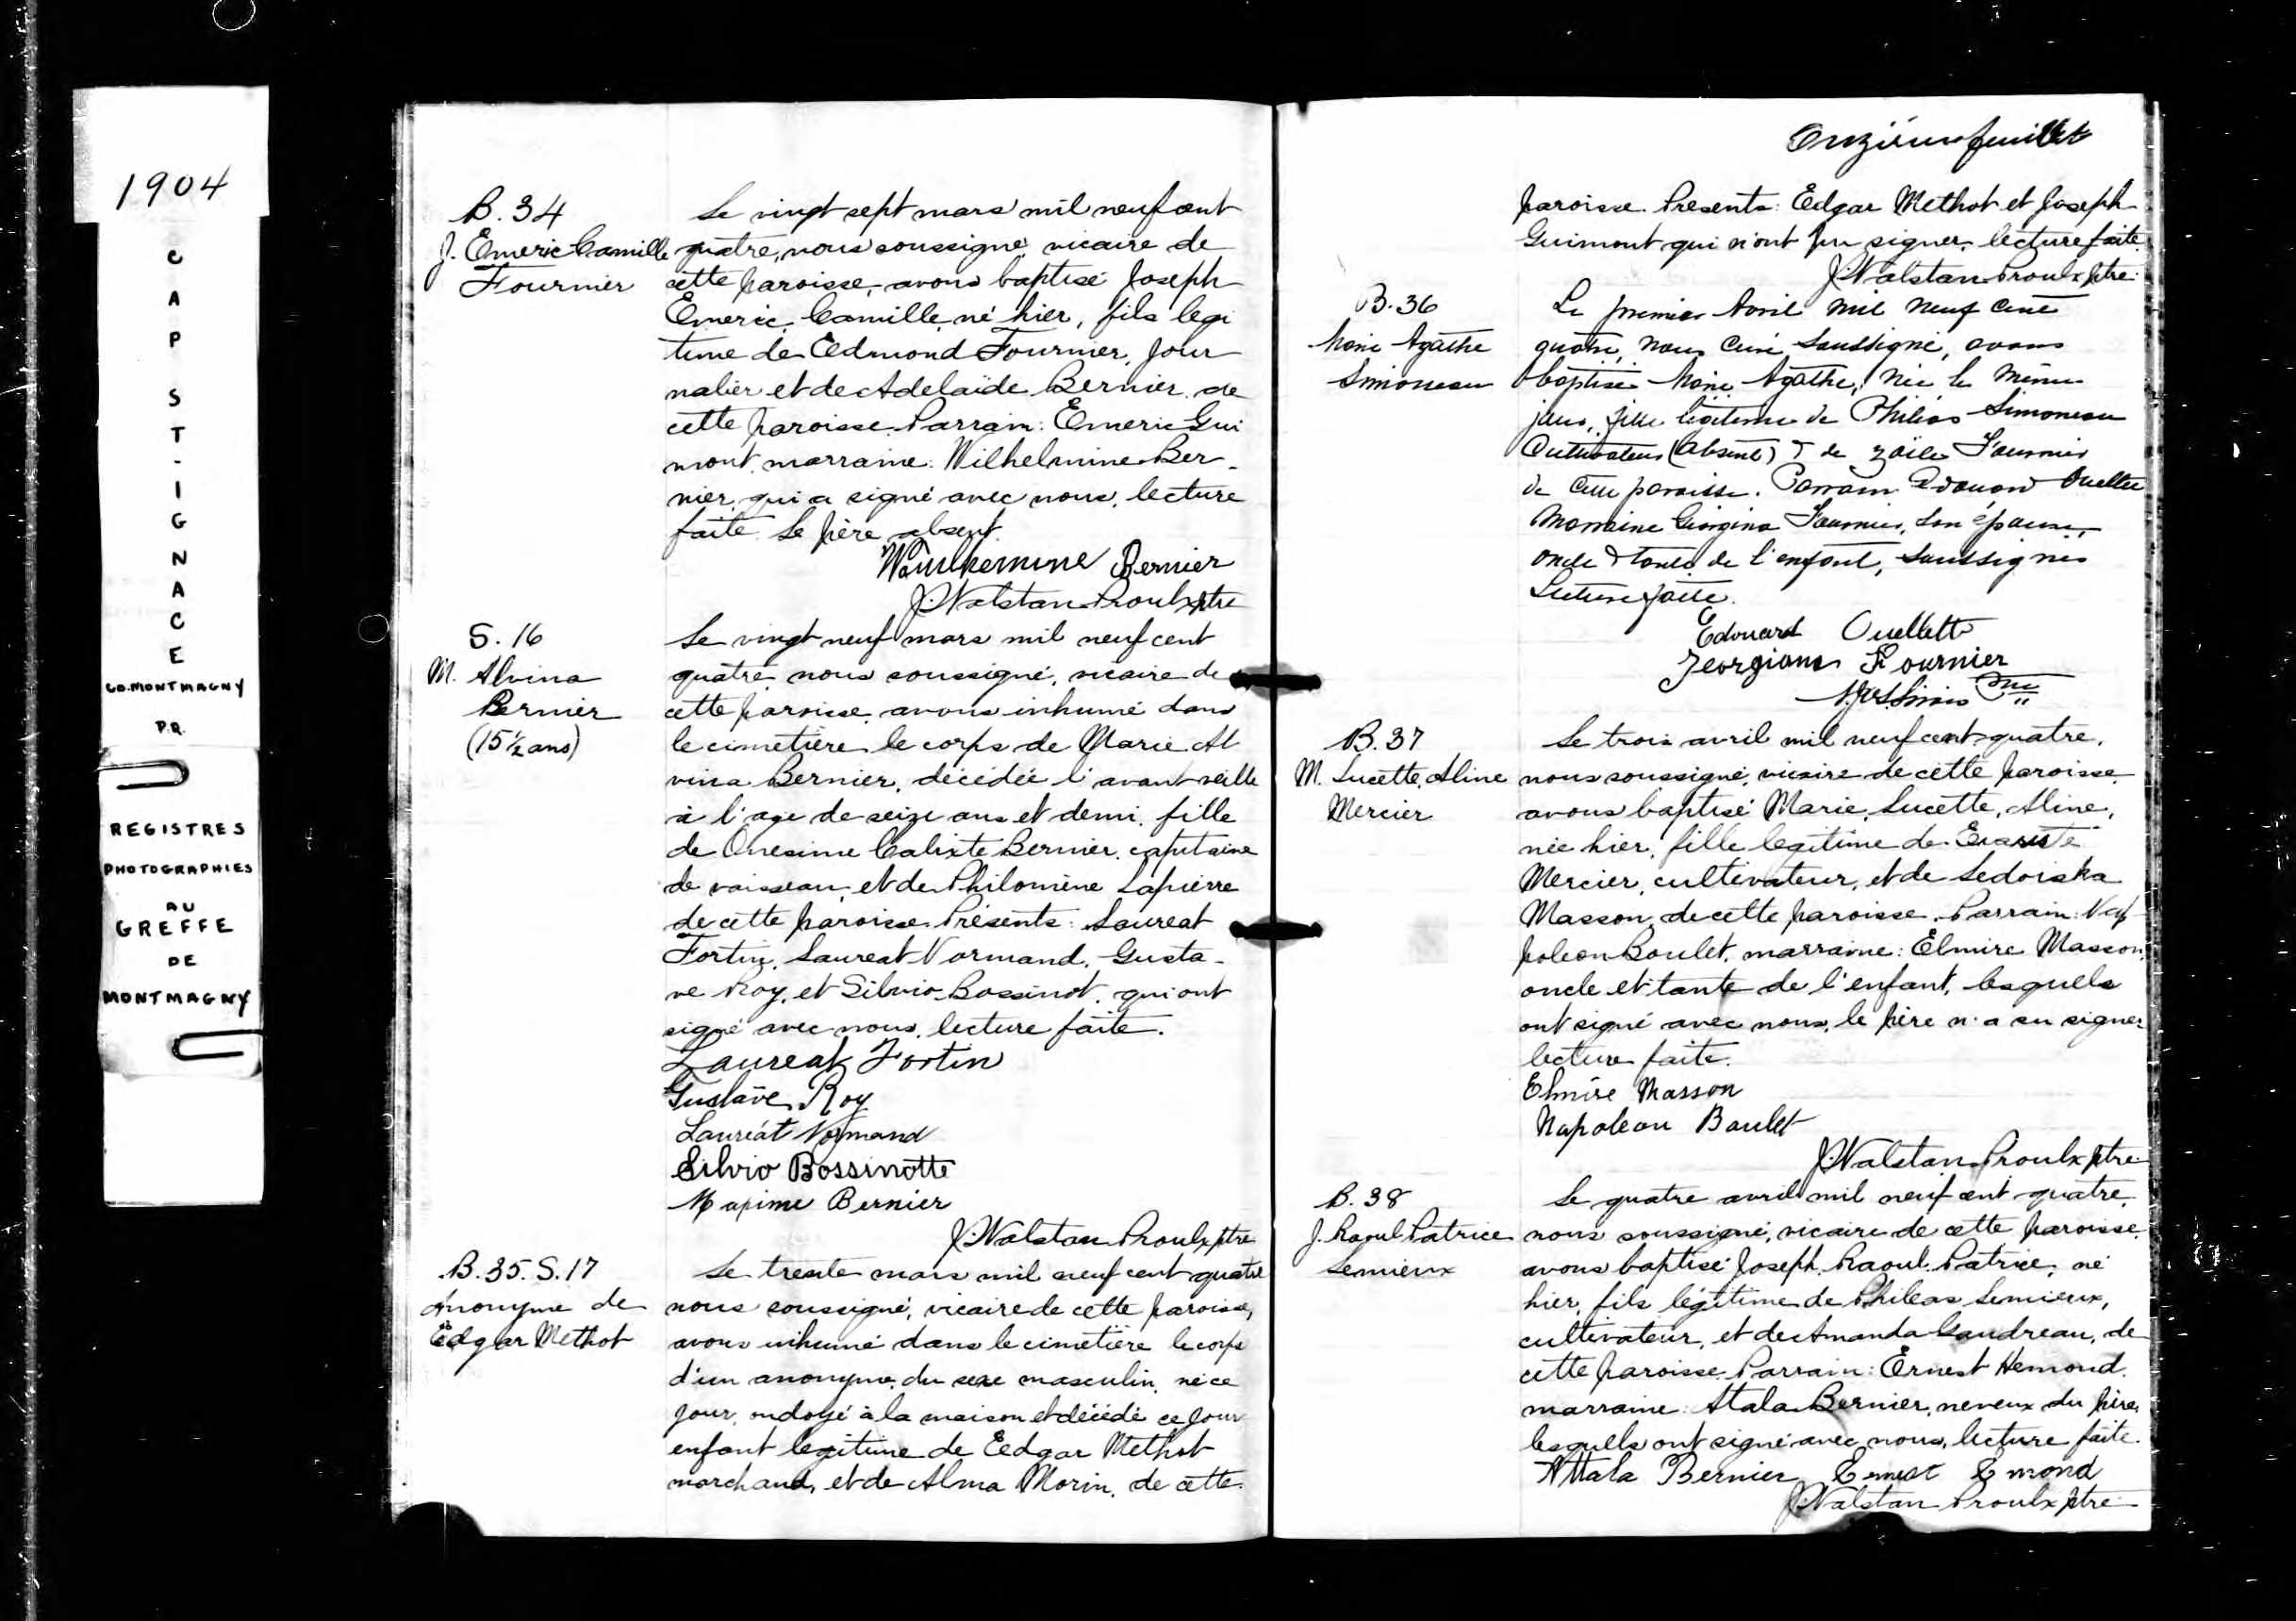 1904
CAP ST-IGNACE
CO. MONTMAGNY
P.Q.
REGISTRES
PHOTOGRAPHIES
AU
GREFFE
DE
MONTMAGNY
B. 34
J. Emeric Camille
Fournier
Le vingt sept mars mil neuf cent
quatre, nous soussigné, vicaire de
cette paroisse, avons baptisé Joseph
Emeric, Camille, né hier, fils legi
time de Edmond Fournier, jour
nalier et de Adelaïde Bernier de
cette paroisse. Parrain: Emeric Gui
mont, marraine: Wilhelmine Ber-
nier, qui a signé avec nous, lecture
faite. Le père absent.
Bernier
J. Walstan Proulx ptre
S. 16
M. Alvina
Bernier
(15 1/2 ans)
Le vingt neuf mars mil neuf cent
quatre nous soussigné, vicaire de
cette paroisse, avons inhumé dans
le cimetière le corps de Marie Al
vina Bernier, décédée l'avant veille
à l'age de seize ans et demi, fille
de Onesime Calixte Bernier, capitaine
de vaisseau, et de Philomène Lapierre
de cette paroisse. Présents: Laureat
Fortin, Laureat Normand, Gusta-
ve Roy, et Silvio Bossinot, qui ont
signé avec nous, lecture faite.
Laureat Fortin
Gustave Roy
Lauréat Normand
Silvio Bossinotte
Maxime Bernier
J. Walstan Proulx ptre
B. 35. S. 17
Anonyme de
Edgar Methot
Le trente mars mil neuf cent quatre
nous soussigné, vicaire de cette paroisse,
avons inhumé dans le cimetière le corps
d'un anonyme du sexe masculin, né ce
jour, ondoyé à la maison et décédé ce jour
enfant legitime de Edgar Methot
marchand, et de Alma Morin, de cette
Onzième feuillet
paroisse. Presents: Edgar Methot et Joseph
Guimont qui n'ont pu signer, lecture faite.
J. Walstan Proulx ptre.
B. 36
Marie Agathe
Simoneau
Le premier Avril mil neuf cent
quatre, nous curé soussigné, avons
baptisé Marie Agathe, née le même
jour, fille légitime de Philéas Simoneau
Cultivateur (absent) & de Zoïle Fournier
de cette paroisse. Parrain Edouard Ouellet
Marraine Georgina Fournier, son épouse,
oncle & tante de l'enfant, soussignés
Lecture faite.
Edouard Ouellette
Georgiana Fournier
B. 37
M. Lucette, Aline
Mercier
Le trois avril mil neuf cent quatre,
nous soussigné, vicaire de cette paroisse,
avons baptisé Marie, Lucette, Aline,
née hier, fille legitime de Evariste
Mercier, cultivateur, et de Ledoiska
Masson, de cette paroisse. Parrain: Na
poleon Boulet, marraine: Elmire Masson,
oncle et tante de l'enfant, lesquels
ont signé avec nous, le père n'a su signer
lecture faite.
Elmire Masson
Napoleon Boulet
J. Walstan Proulx ptre.
B. 38
J. Raoul Patrice
Lemieux
Le quatre avril mil neuf cent quatre,
nous soussigné, vicaire de cette paroisse,
avons baptisé Joseph, Raoul, Patrice, né
hier, fils légitime de Phileas Lemieux,
cultivateur, et de Amanda Gaudreau, de
cette paroisse. Parrain: Ernest Hemond,
marraine: Atala Bernier, neveux du père,
lesquels ont signé avec nous, lecture faite.
Attala Bernier Ernest Emond
J. Walstan Proulx ptre.